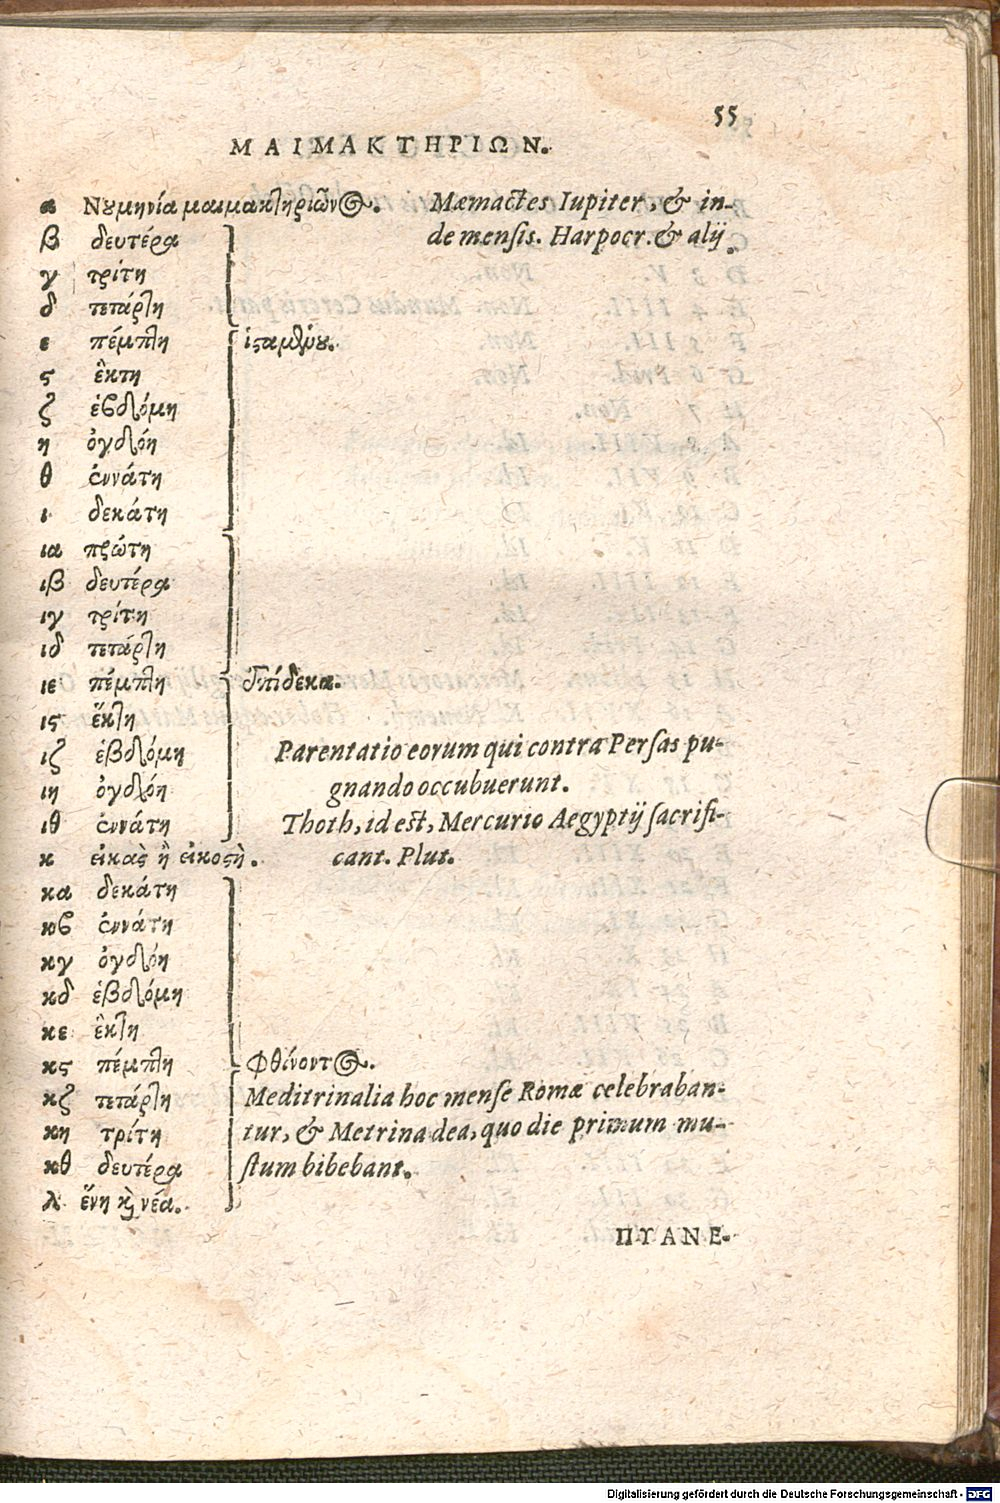 55
ΜΑΙΜΑΚΤΗΡΙΩΝ.
α Νουμηνία μαιμακτηριῶνος. Mæmactes Iupiter, & in-
β δευτέρα de mensis. Harpocr. & alij.
γ τρίτη
δ τετάρτη
ε πέμπτη ἱσταμένου.
ς ἕκτη
ζ ἑβδόμη
η ὀγδόη
θ ἐννάτη
ι δεκάτη
ια πρώτη
ιβ δευτέρα
ιγ τρίτη
ιδ τετάρτη
ιε πέμπτη ἐπίδεκα.
ις ἕκτη
ιζ ἑβδόμη Parentatio eorum qui contra Persas pu-
ιη ὀγδόη gnando occubuerunt.
ιθ ἐννάτη Thoth, id est, Mercurio Aegyptij sacrifi-
κ εἰκὰς ἢ εἰκοστὴ. cant. Plut.
κα δεκάτη
κβ ἐννάτη
κγ ὀγδόη
κδ ἑβδόμη
κε ἕκτη
κς πέμπτη φθίνοντος.
κζ τετάρτη Meditrinalia hoc mense Romæ celebraban-
κη τρίτη tur, & Metrina dea, quo die primum mu-
κθ δευτέρα stum bibebant.
λ ἕνη καὶ νέα.
ΠΥΑΝΕ-
Digitalisierung gefördert durch die Deutsche Forschungsgemeinschaft - DFG